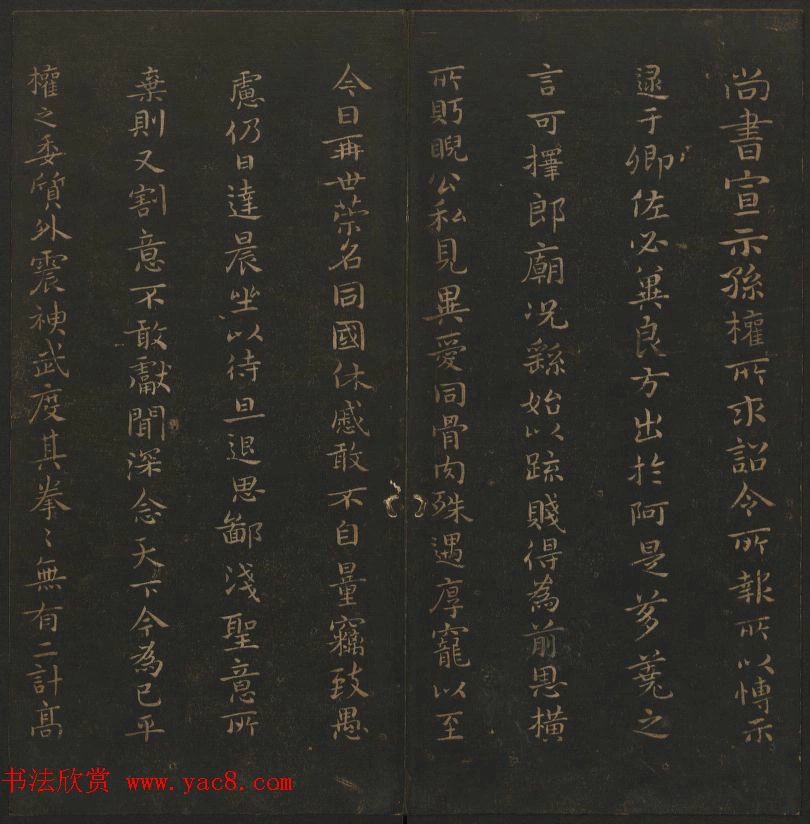 尚書宣示孫權所求詔令所報所以博示
逮于卿佐必冀良方出於阿是芻蕘之
言可擇郎廟況繇始以疏賤得為前恩橫
所盱睨公私見異愛同骨肉殊遇厚寵以至
今日再世榮名同國休慼敢不自量竊致愚
慮仍日達晨坐以待旦退思鄙淺聖意所
棄則又割意不敢獻聞深念天下今為已平
權之委質外震神武度其拳〻無有二計高
书法欣赏 www.yac8.com